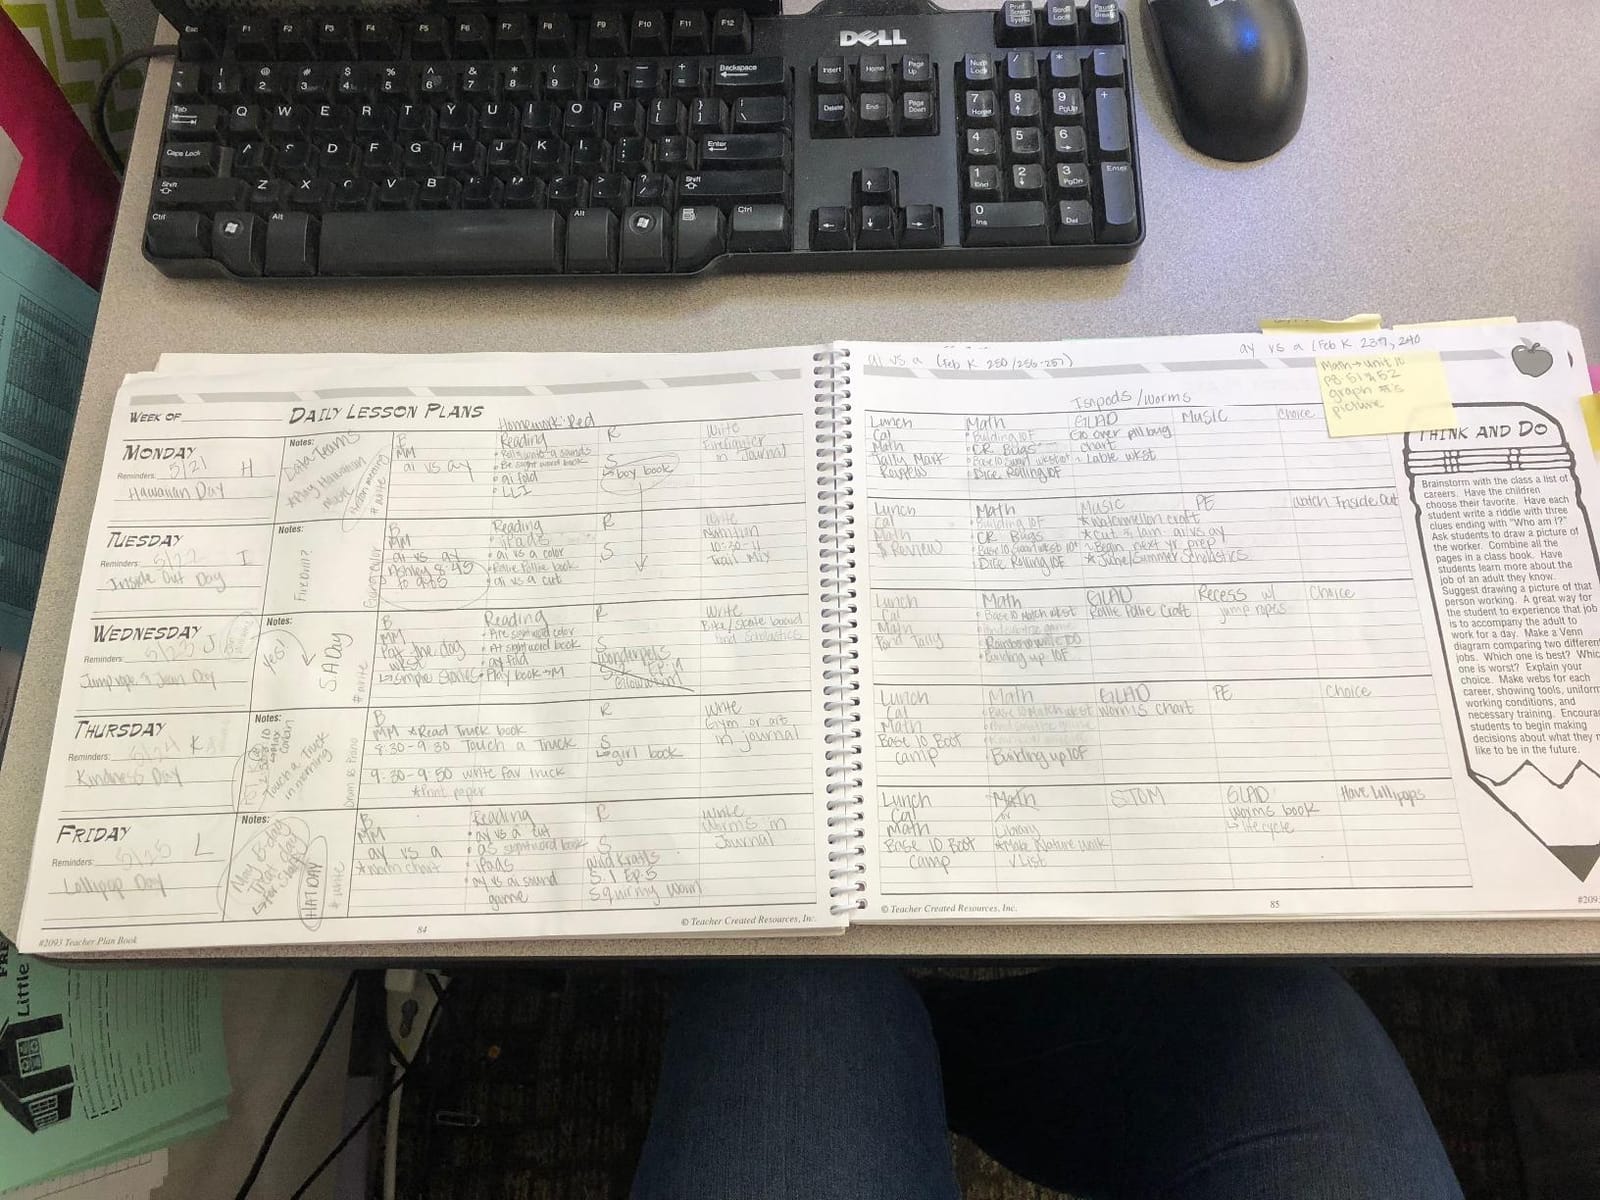 DELL
Esc
F1 F2 F3 F4 F5 F6 F7 F8 F9 F10 F11 F12
Print Screen SysRq
Scroll Lock
Pause Break
Backspace
Insert Home Page Up
Num Lock / * -
Tab
Q W E R T Y U I O P
Delete End Page Down
7 Home 8 9 PgUp +
Caps Lock
D F G H J K
Enter
4 5 6
Shift
Z X V B
Shift
1 End 2 3 PgDn Enter
Ctrl Alt Alt Ctrl
0 Ins . Del
WEEK OF
DAILY LESSON PLANS
Homework: Red
MONDAY
Reminders: 5/21 H
Hawaiian Day
Notes:
Data Teams
*Play Hawaiian
music
B
MM
ai vs ay
Reading
• Be sight word book
• ai fold
• LLI
R
S
↳ boy book
Write
Firefighter
in Journal
TUESDAY
Reminders: 5/22 I
Inside Out Day
Notes:
Fire Drill?
B
MM
ai vs ay
8:45
to 9:45
Reading
• iPads
• ai vs a color
• Rollie Pollie book
• ai vs a cut
R
S
Write
Nutrition
10:30-11
Trail Mix
WEDNESDAY
Reminders: 5/23 J
Jump rope & Jean Day
Notes:
Yes!
SA Day
# write
B
MM
Pat the dog
wkst
↳ simple stories
Reading
• Are sight word color
• At sight word book
• ay fold
• Play book → M
R
S
Wonderpets
Write
Bike/skate board
and scholastics
THURSDAY
Reminders: 5/24 K
Kindness Day
Notes:
Touch a Truck
in morning
B
MM *Read Truck book
8:30-9:30 Touch a Truck
9:30-9:50 write fav truck
*Print paper
R
S
↳ girl book
Write
Gym or art
in journal
FRIDAY
Reminders: 5/25 L
Lollipop Day
Notes:
May B-day
HAT DAY
# write
B
MM
ay vs a
*Math chart
Reading
• ay vs a cut
• as sight word book
• iPads
• ay vs ai sound
game
R
S
Wild Kratts
S.1 Ep.5
Squirmy Worm
Write
Worms in
Journal
#2093 Teacher Plan Book
84
© Teacher Created Resources, Inc.
ai vs a (Feb K 250/256-257)
ay vs a (Feb K 239, 240
Math → unit 10
pg 51 & 52
graph #'s
picture
Isopods/Worms
Lunch
Cal
Math
Tally Mark
Review
Math
• Building 10F
• CR Bugs
• Dice Rolling 10F
GLAD
Go over pill bug
chart
- Lable wkst
Music
Choice
Lunch
Cal
Math
$ Review
Math
• Building 10F
CR Bugs
• Dice Rolling 10F
Music
*Watermellon craft
*Cut & lam ai vs ay
- Begin next yr prep
*June/Summer Scholastics
PE
Watch Inside Out
Lunch
Cal
Math
Pond Tally
Math
• Base 10 Match wkst
• Building up 10F
GLAD
Rollie Pollie Craft
Recess w/
jump ropes
Choice
Lunch
Cal
Math
Base 10 Boot
camp
Math
• Base 10 Match wkst
• Building up 10F
GLAD
worms chart
PE
Choice
Lunch
Cal
Math
Base 10 Boot
camp
Math
or
Library
*Make Nature walk
v List
STOM
GLAD
Worms book
↳ life cycle
Have lollipops
THINK AND DO
Brainstorm with the class a list of
careers. Have the children
choose their favorite. Have each
student write a riddle with three
clues ending with "Who am I?"
Ask students to draw a picture of
the worker. Combine all the
pages in a class book. Have
students learn more about the
job of an adult they know.
Suggest drawing a picture of that
person working. A great way for
the student to experience that job
is to accompany the adult to
work for a day. Make a Venn
diagram comparing two different
jobs. Which one is best? Which
one is worst? Explain your
choice. Make webs for each
career, showing tools, uniform
working conditions, and
necessary training. Encourage
students to begin making
decisions about what they
like to be in the future.
© Teacher Created Resources, Inc.
85
#2093
Little